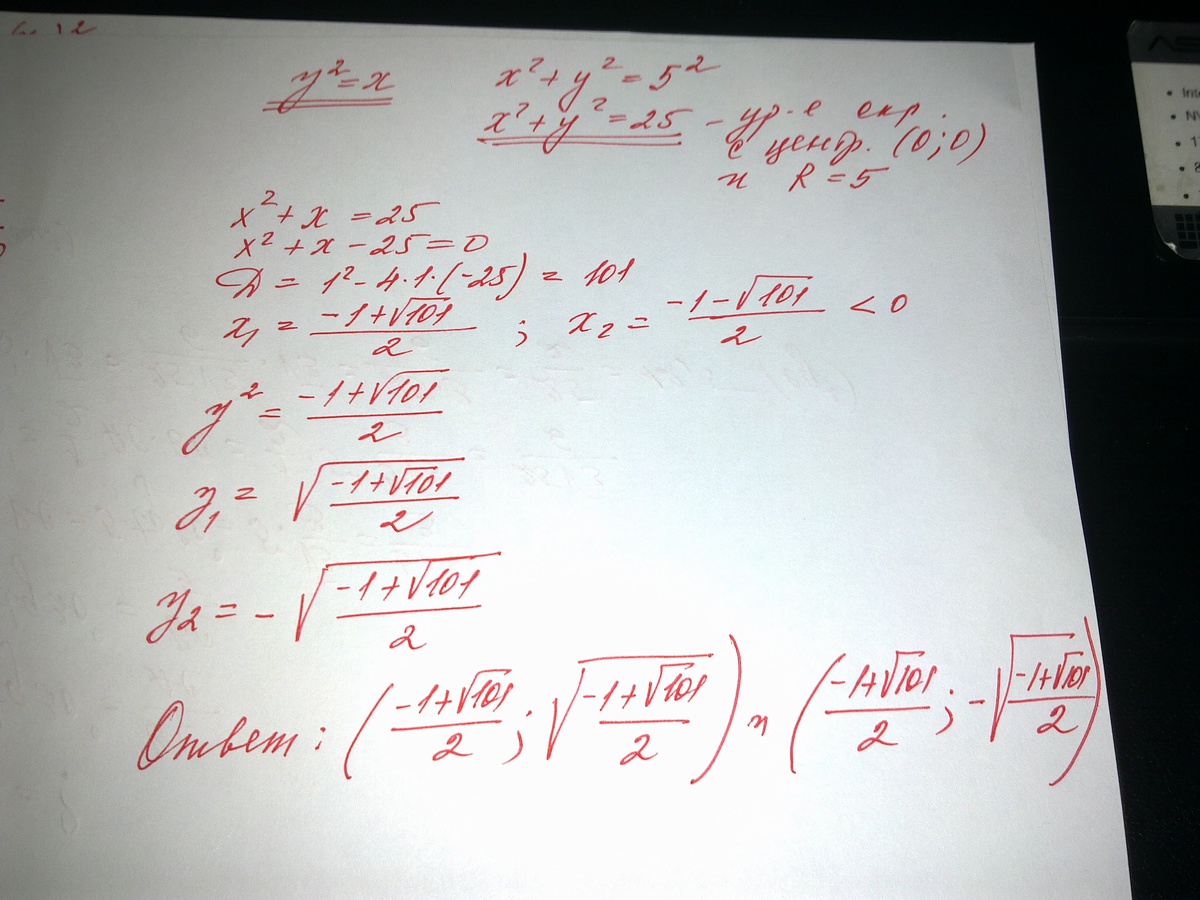 y² = x
x² + y² = 5²
x² + y² = 25 – ур-е окр.
с центр. (0; 0)
и R = 5
x² + x = 25
x² + x – 25 = 0
D = 1² – 4·1·(-25) = 101
x₁ = (-1+√101)/2 ; x₂ = (-1-√101)/2 < 0
y² = (-1+√101)/2
y₁ = √((-1+√101)/2)
y₂ = -√((-1+√101)/2)
Ответ: ((-1+√101)/2 ; √((-1+√101)/2)) и ((-1+√101)/2 ; -√((-1+√101)/2))